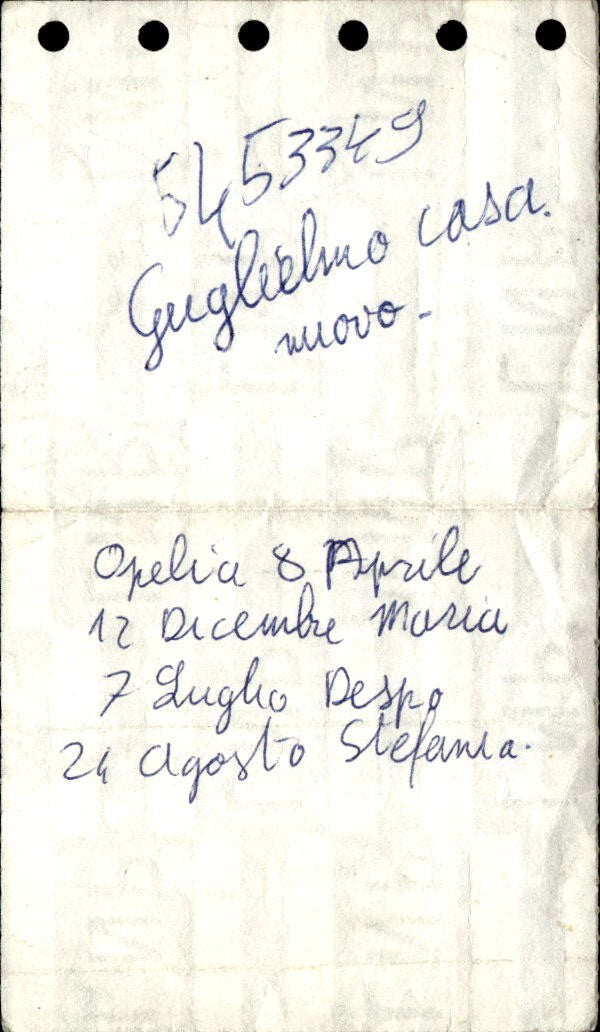 5453349
Guglielmo casa.
nuovo-
Opelia 8 Aprile
12 Dicembre Maria
7 Luglio Despo
24 Agosto Stefania.